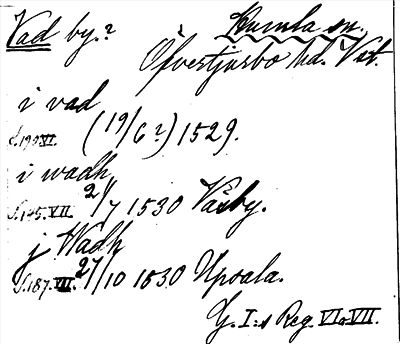 Vad by.? Kumla sn.
Öfvertjurbo hd. Vstm.
i vad
s.199.VI. (19/6?) 1529.
i wadh
s.145.VII. 2/7 1530 Väsby.
j Wadh
s.187.VII. 27/10 1530 Upsala.
G. I:s Reg. VI o. VII.